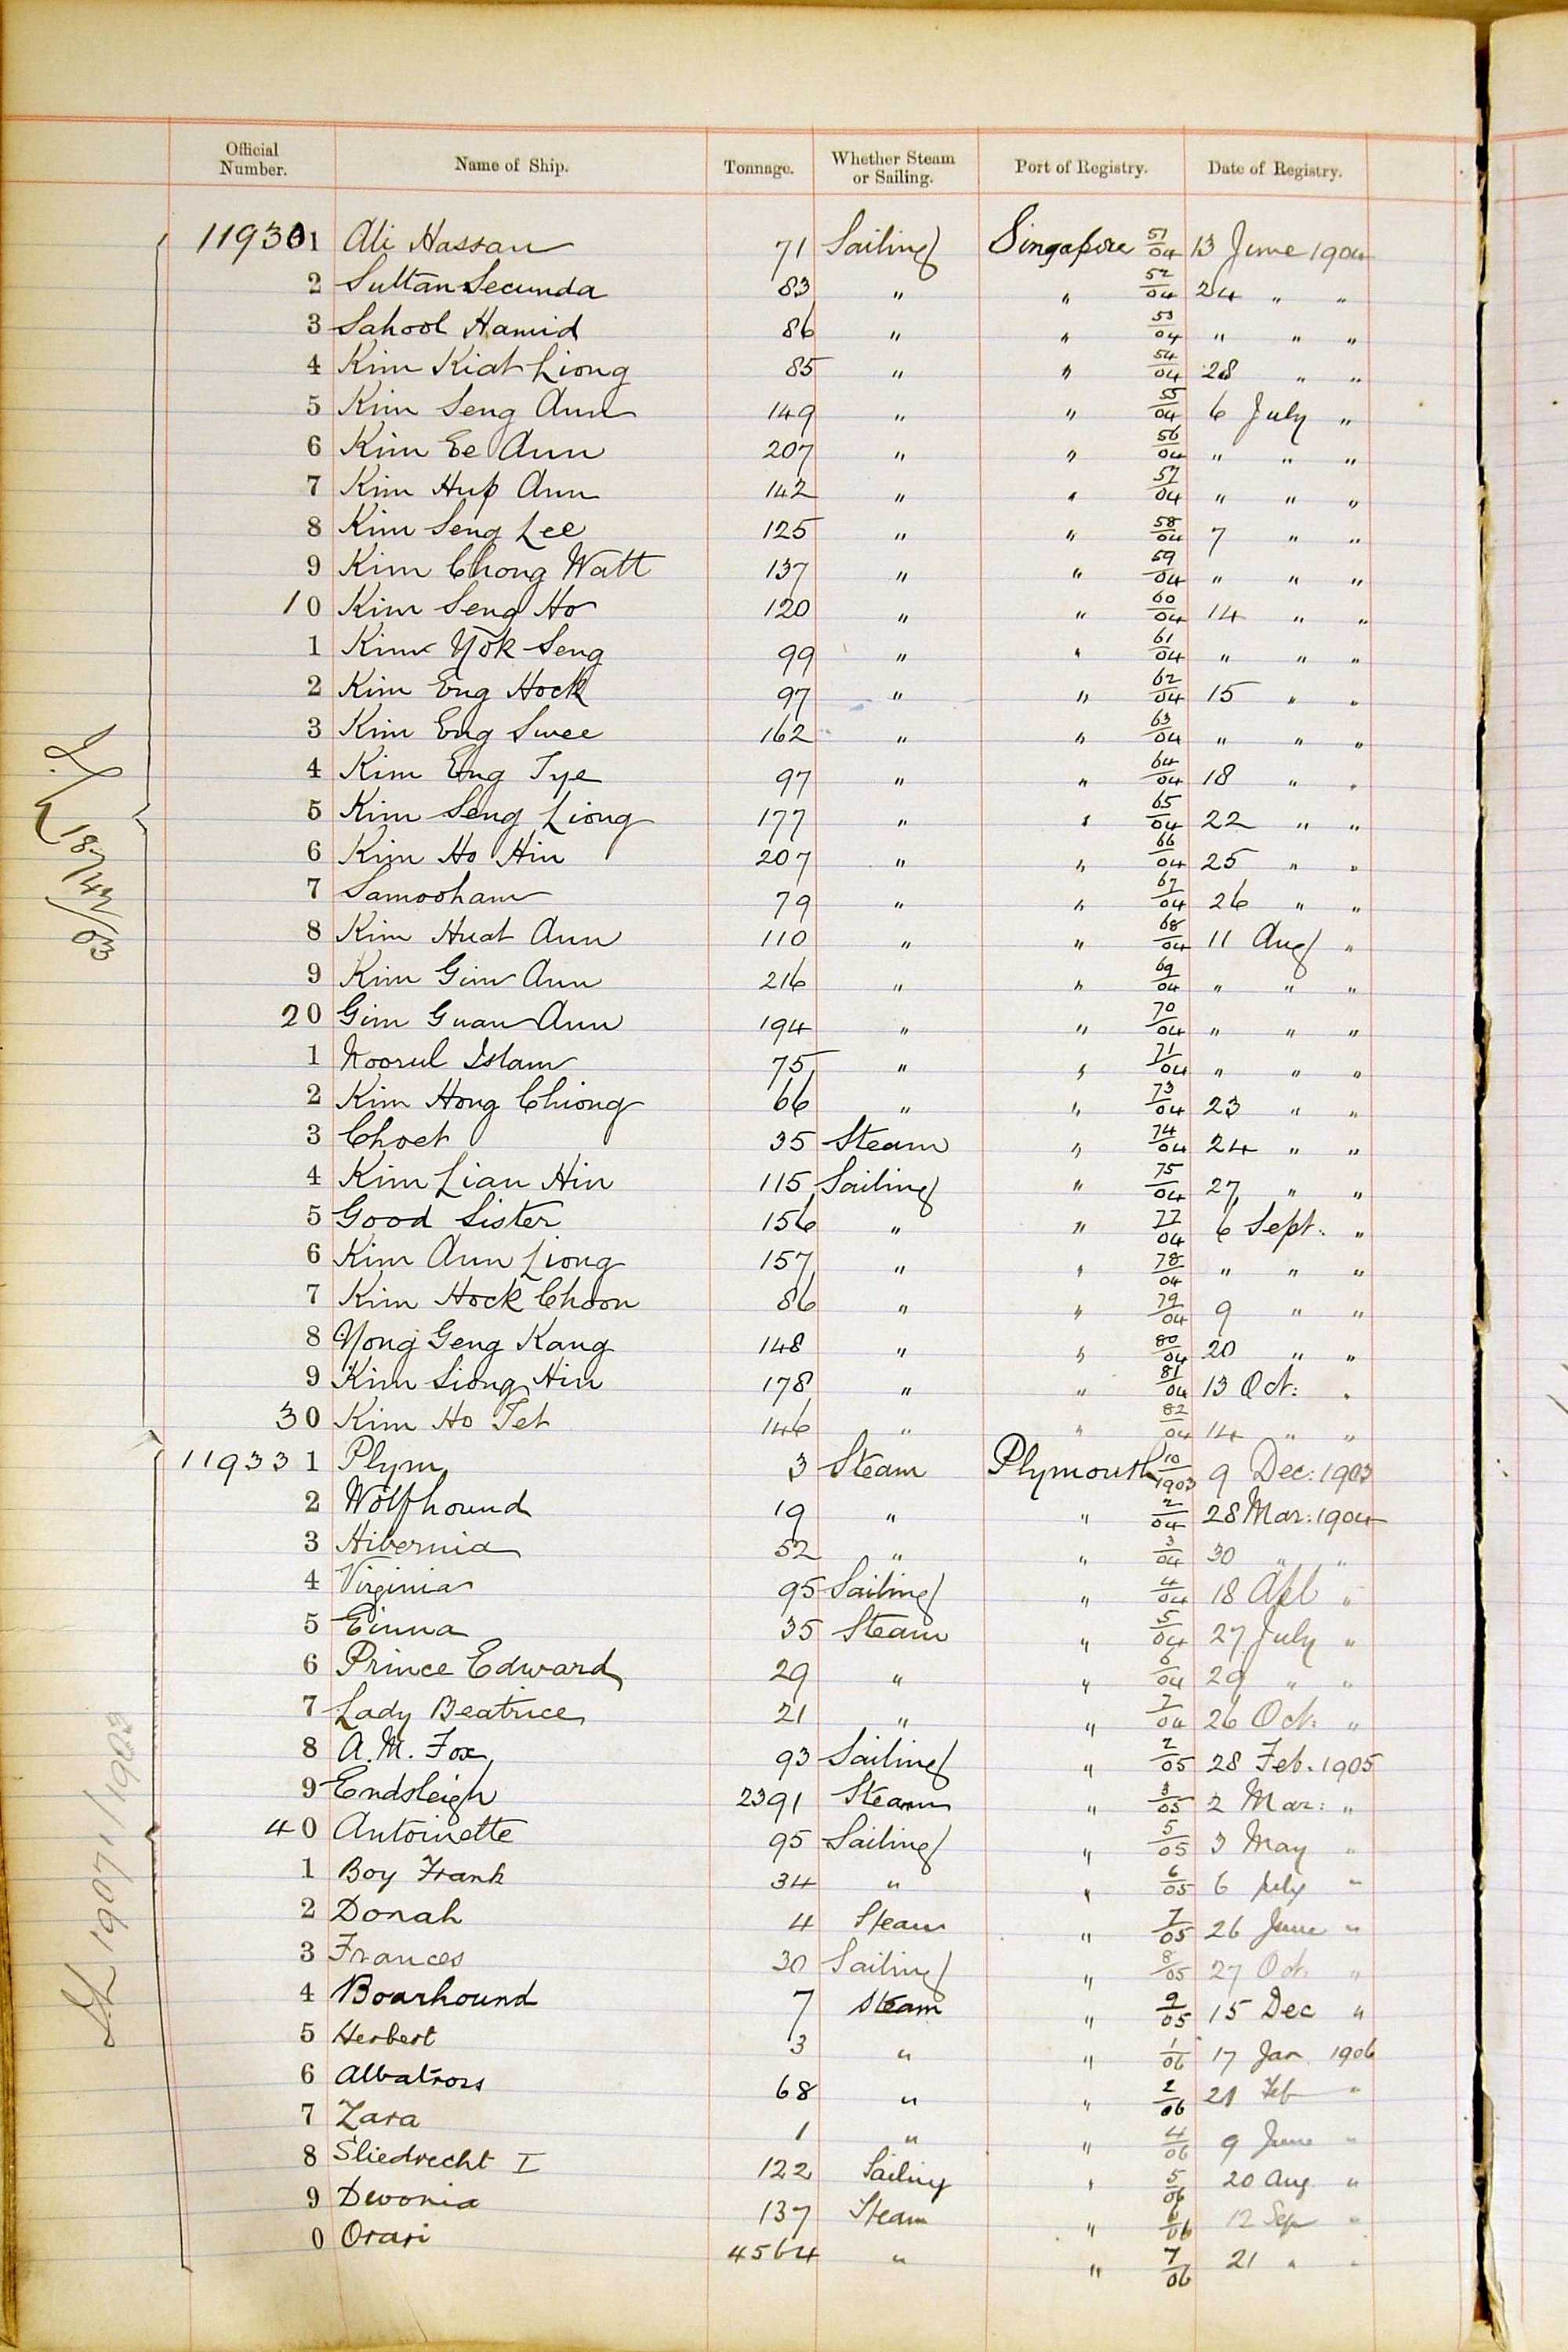 Official Number. Name of Ship. Tonnage. Whether Steam or Sailing. Port of Registry. Date of Registry.
119301 Ali Hassan 71 Sailing Singapore 51/04 13 June 1904
2 Sultan Secunda 83 " " 52/04 24 " "
3 Sahool Hamid 86 " " 53/04 " " "
4 Kim Kiat Liong 85 " " 54/04 28 " "
5 Kim Seng Ann 149 " " 55/04 6 July "
6 Kim Ee Ann 207 " " 56/04 " " "
7 Kim Hup Ann 142 " " 57/04 " " "
8 Kim Seng Lee 125 " " 58/04 7 " "
9 Kim Chong Watt 137 " " 59/04 " " "
10 Kim Seng Ho 120 " " 60/04 14 " "
1 Kim Yok Seng 99 " " 61/04 " " "
2 Kim Eng Hock 97 " " 62/04 15 " "
3 Kim Eng Swee 162 " " 63/04 " " "
4 Kim Eng Tye 97 " " 64/04 18 " "
5 Kim Seng Liong 177 " " 65/04 22 " "
6 Kim Ho Hin 207 " " 66/04 25 " "
7 Samooham 79 " " 67/04 26 " "
8 Kim Huat Ann 110 " " 68/04 11 Aug "
9 Kim Gim Ann 216 " " 69/04 " " "
20 Gim Guan Ann 194 " " 70/04 " " "
1 Noorul Islam 75 " " 71/04 " " "
2 Kim Hong Chiong 66 " " 73/04 23 " "
3 Choet 35 Steam " 74/04 24 " "
4 Kim Lian Hin 115 Sailing " 75/04 27 " "
5 Good Sister 156 " " 77/04 6 Sept. "
6 Kim Ann Liong 157 " " 78/04 " " "
7 Kim Hock Choon 86 " " 79/04 9 " "
8 Yong Geng Kang 148 " " 80/04 20 " "
9 Kim Liong Hin 178 " " 81/04 13 Oct: "
30 Kim Ho Tet 146 " " 82/04 14 " "
119331 Plym 3 Steam Plymouth 10/1903 9 Dec: 1903
2 Wolfhound 19 " " 2/04 28 Mar: 1904
3 Hibernia 52 " " 3/04 30 " "
4 Virginia 95 Sailing " 4/04 18 Apl "
5 Einna 35 Steam " 5/04 27 July "
6 Prince Edward 29 " " 6/04 29 " "
7 Lady Beatrice 21 " " 7/04 26 Oct: "
8 A.M. Fox 93 Sailing " 2/05 28 Feb. 1905
9 Endsleigh 2391 Steam " 3/05 2 Mar: "
40 Antoinette 95 Sailing " 5/05 3 May "
1 Boy Frank 34 " " 6/05 6 July "
2 Donah 4 Steam " 7/05 26 June "
3 Frances 30 Sailing " 8/05 27 Oct. "
4 Boarhound 7 Steam " 9/05 15 Dec "
5 Herbert 3 " " 1/06 17 Jan 1906
6 Albatross 68 " " 2/06 21 Feb "
7 Zara 1 " " 4/06 9 June "
8 Sliedrecht I 122 Sailing " 5/06 20 Aug. "
9 Devonia 137 Steam " 6/06 12 Sep "
0 Orari 4564 " " 7/06 21 " "
19071/1903